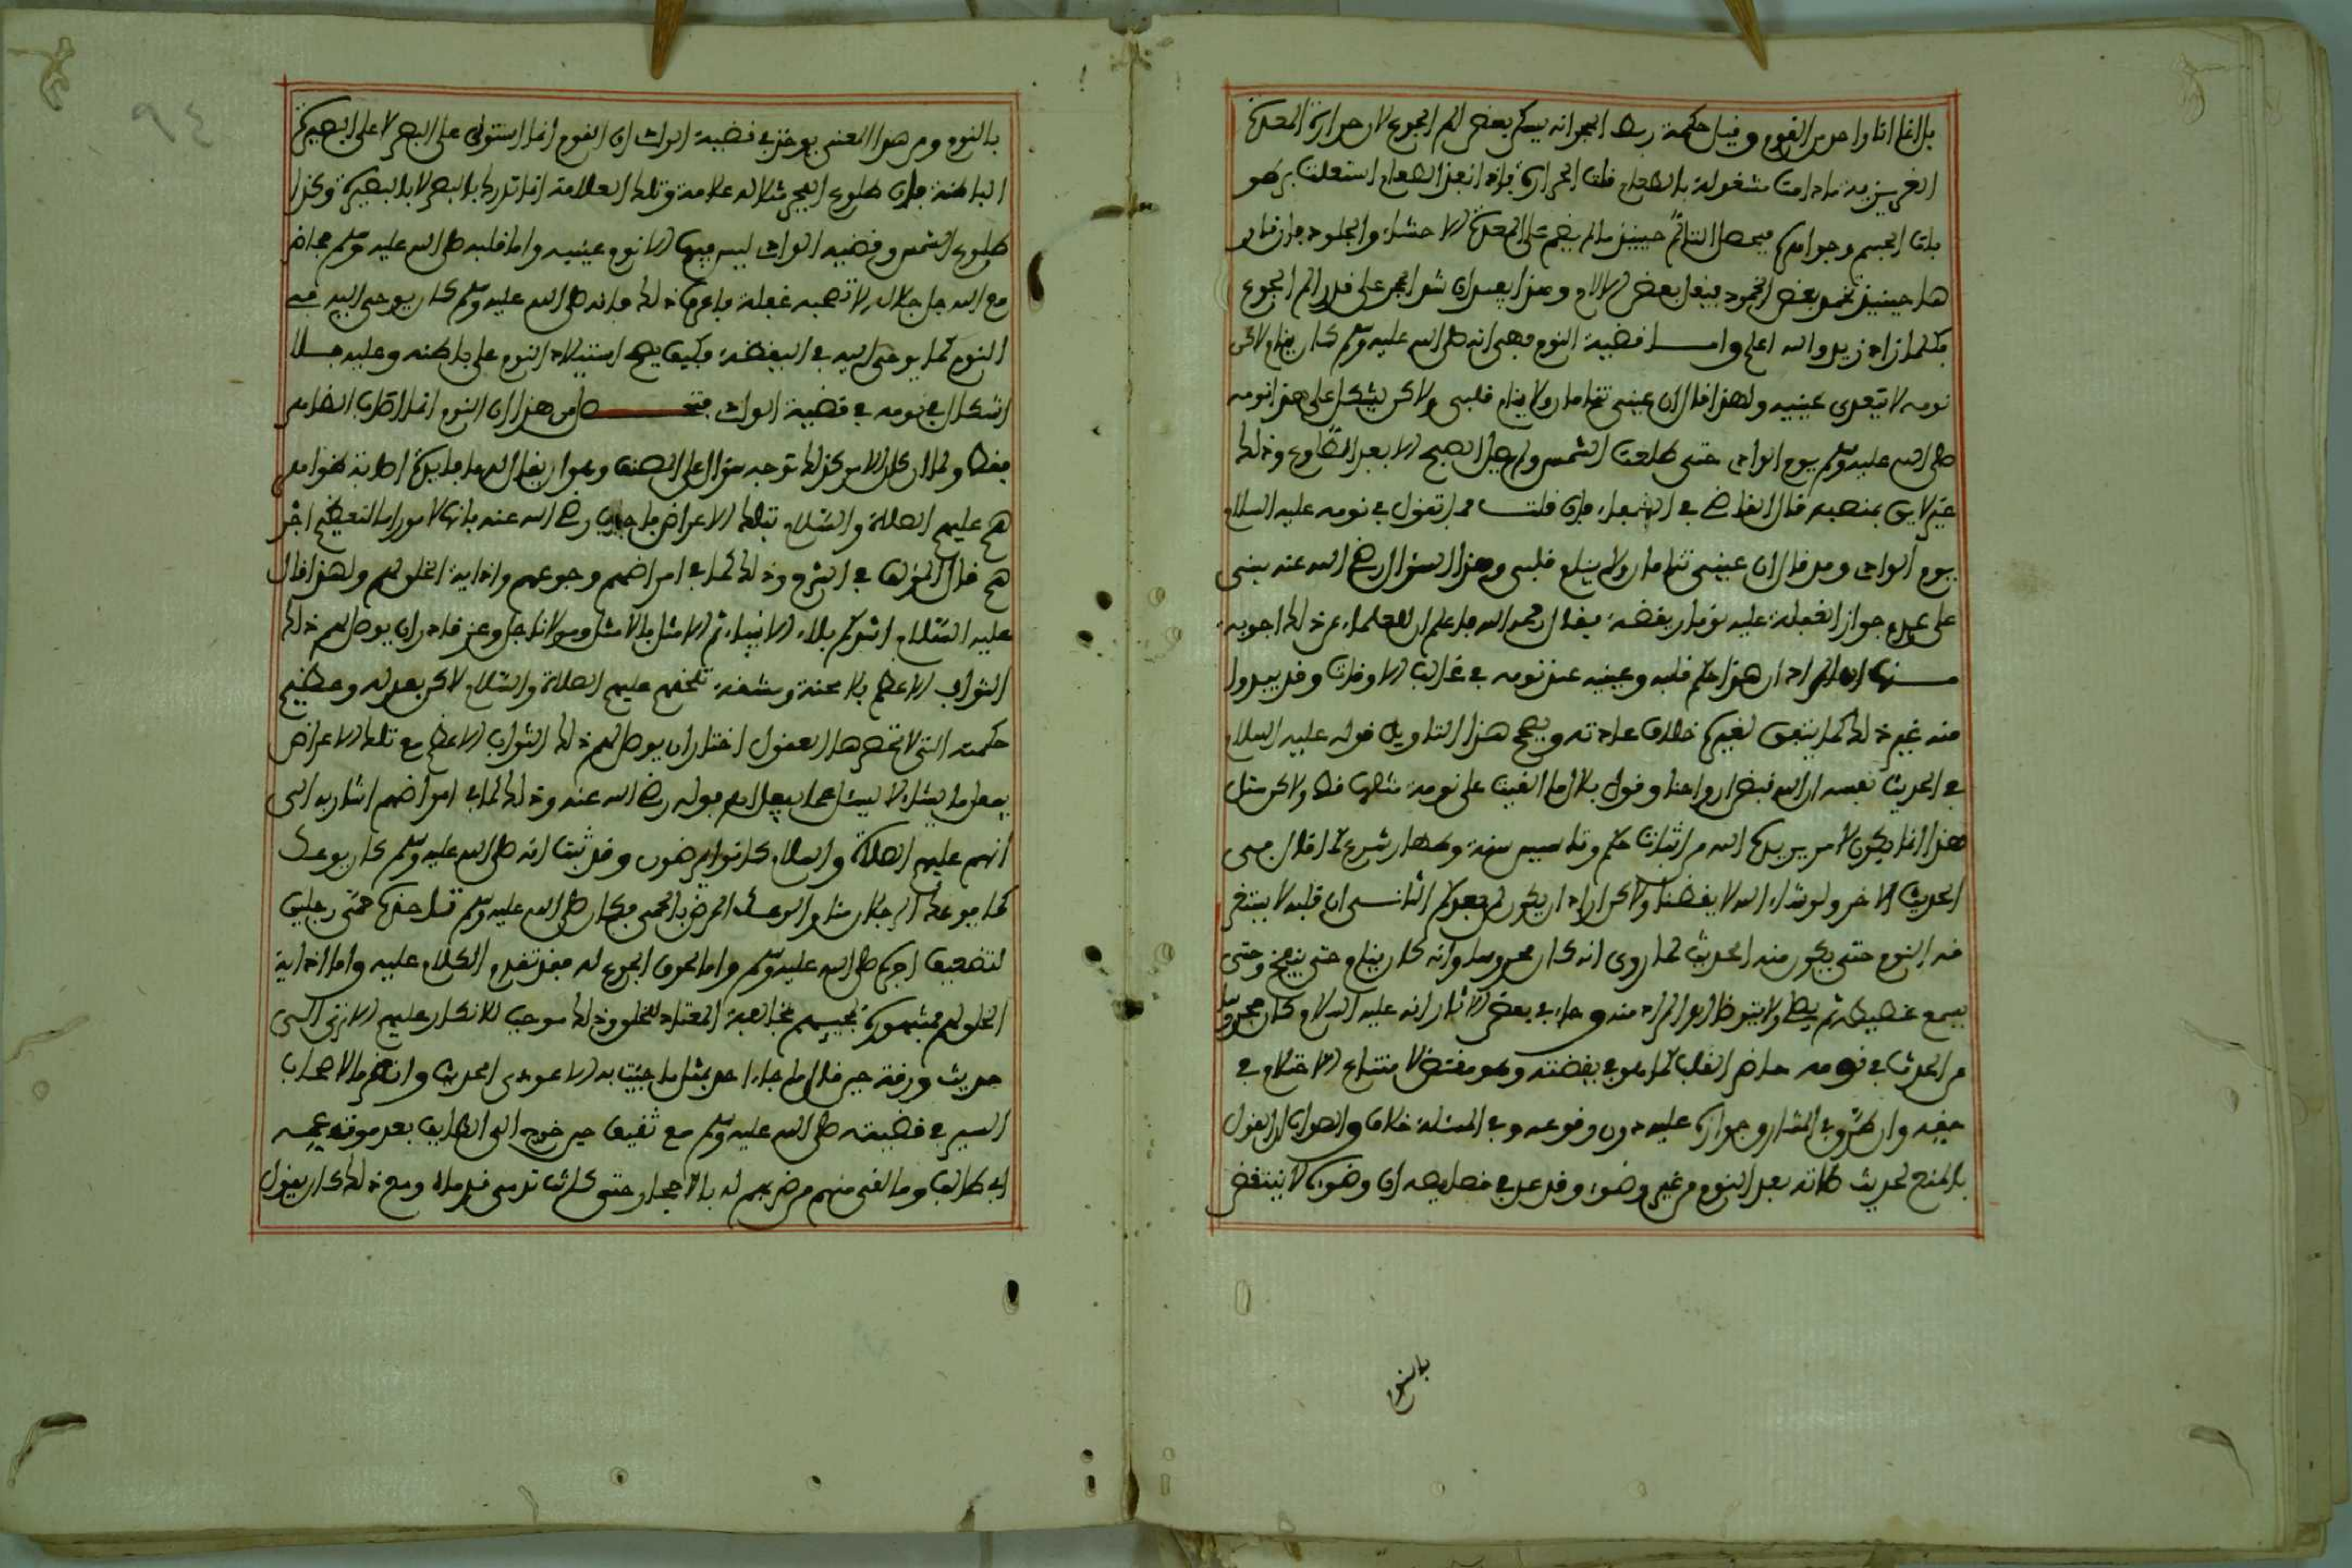 بل انما انا واحد من القوم وقيل حكمة ربط الحجر انه يسكن بعض الم الجوع لان حرارة المعدة
الغريزية ما دامت مشغولة بالطعام قلت الحرارة فإذا نفذ الطعام استعلت برطو
بات الجسم وجواهره فيحصل التألم حينئذ ما لم يضم على المعدة الاحشاء والجلود فإن نار
ها حينئذ تخمد بعض الخمود فيقل بعض الالام وهذا يفيد ان شد الحجر على قدر الم الجوع
فكلما زاد زيد والله اعلم وامـــا قضية النوم فهي انه صلى الله عليه وسلم كان ينام ولاكن
نومه لا يتعدى عينيه ولهذا قال ان عيني تنامان ولا ينام قلبي ولاكن يشكل على هذا نومه
صلى الله عليه وسلم يوم الوادي حتى طلعت الشمس ولم يصل الصبح الا بعد الطلوع وذلك
غير لايق بمنصبه قال القاضي في الشفاء فإن قلت فما تقول في نومه عليه السلام
يوم الوادي وقد قال ان عيني تنامان ولا ينام قلبي وهذا السؤال رضي الله عنه بنبني
على عدم جواز الغفلة عليه نوما ويقظة فقال رحمه الله فاعلم ان للعلماء عن ذلك اجوبة
منها ان المراد ان هذا حكم قلبه وعينيه عند نومه في غالب الاوقات وقد يبدوا
منه غير ذلك كما يتفق لغيره خلاف عادته ويصحح هذا التاويل قوله عليه السلام
في الحديث نفسه ان الله قبض ارواحنا وقول بلال ما القيت على نومة مثلها قط ولاكن مثل
هذا انما يكون لامر يريده الله من اثبات حكم وتاسيس سنة واظهار شرع كما قال في
الحديث الاخر ولو شاء الله لايقظنا ولاكن اراد ان يكون لمن بعدكم الثاني ان قلبه لا يستغر
قه النوم حتى يكون منه الحدث لما روي انه كان محروسا وانه كان ينام حتى ينفخ وحتى
يسمع غطيطه ثم يصلي ولا يتوضا المراد منه وجاء في بعض الاثار انه عليه السلام كان محروسا
من الحدث في نومه حاضر القلب كما هو في يقظته وهو مقتضى لامتناع الاحتلام في
حقه وان كثر في المشار وجوازه عليه دون وقوعه وفي المسئلة خلاف والصواب القول
بالمنع لحديث صلاته بعد النوم من غير وضوء وقد عد في خصايصه ان وضوءه لا ينتقض
بالنو
بالنوم ومن هذا المعنى يوخذ في قضية الواد ان النوم انما استولى على البصر لا على البصيرة
الباطنة فإن طلوع الفجر مثلا له علامة وتلك العلامة انما تدرك بالبصر لا بالبصيرة وكذا
طلوع الشمس وقضية الواد ليس فيها الا نوم عينيه واما قلبه صلى الله عليه وسلم فحاضر
مع الله جل جلاله لا تصيبه غفلة فاعرف ذلك فإنه صلى الله عليه وسلم كان يوحى اليه في
النوم كما يوحى اليه في اليقظة فكيف يصح استيلاء النوم على باطنه وعليه فــلا
اشكال في نومه في قضية الواد فتحـــصل من هذا ان النوم انما اصاب الظاهر
فقط ولما كان كل الامر كذلك توجه سؤال على المصنف وهو ان يقال له ما فايدة اصابة ظواهر
هم عليهم الصلاة والسلام بتلك الاعراض فاجاب رضي الله عنه بانها لامور اما لتعظيم اجر
هم قال المؤلف في الشرح وذلك كما في امراضهم وجوعهم واذاية الخلق لهم ولهذا قال
عليه السلام اشدكم بلاء الانبياء ثم الامثل بالامثل ومولانا جل وعز قادر ان يوصل لهم ذلك
الثواب الاعظم بلا محنة ومشقة تلحقهم عليهم الصلاة والسلام لاكن بعدله وعظيم
حكمته التي لا تحصرها العقول اختار ان يوصل لهم ذلك الثواب الاعظم مع تلك الاعراض
يفعل ما يشاء لا يسئل عما يفعل اه قوله رضي الله عنه وذلك كما في امراضهم اشار به الى
انهم عليهم الصلاة والسلام كانوا يمرضون وقد ثبت انه صلى الله عليه وسلم كان يوعك
كما يوعك الرجلان منا والوعك المرض بالحمى فكان صلى الله عليه وسلم تاخذه حمى رجلين
لتضعيف اجره صلى الله عليه وسلم واما لحوق الجوع له فقد تقدم الكلام عليه واما اذاية
الخلق لهم فمشهورة لمجيئهم بمخالفة المعتاد للخلق وذلك موجب للانكار عليهم الا ترى الى
حديث ورقة حين قال ما جاء احد بمثل ما جئت به الا عودي الحديث وانظر ما لاصحاب
السير في قضيته صلى الله عليه وسلم مع ثقيف حين خرج الى الطايف بعد موت عمه
ابي طالب وما لقي منهم من ضربهم له بالاحجار حتى كادت تدمى قدماه ومع ذلك كان يقول